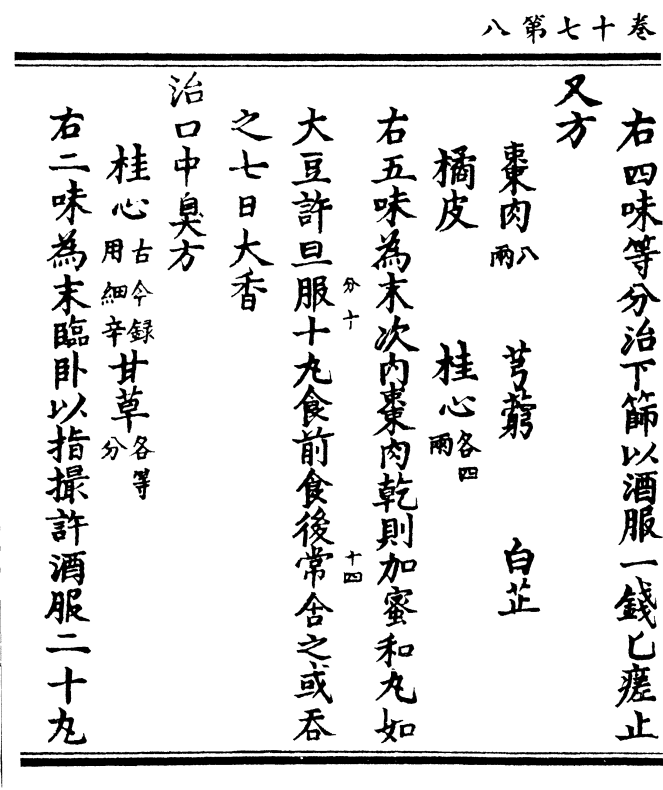 卷十七第八
右四味等分治下篩以酒服一錢匕瘥止
又方
棗肉八兩 芎藭 白芷
橘皮 桂心各四兩
右五味為末次內棗肉乾則加蜜和丸如
分十 十四
大豆許旦服十丸食前食後常含之或吞
之七日大香
治口中臭方
桂心古今録用細辛甘草各等分
右二味為末臨卧以指撮許酒服二十丸